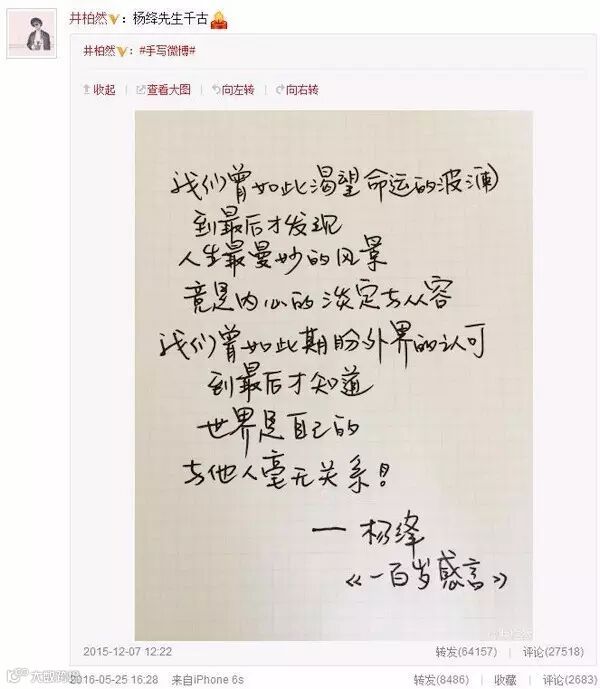 井柏然V：杨绛先生千古
井柏然V：#手写微博#
收起 | 查看大图 | 向左转 向右转
我们曾如此渴望命运的波澜
到最后才发现
人生最曼妙的风景
竟是内心的淡定与从容
我们曾如此期盼外界的认可
到最后才知道
世界是自己的
与他人毫无关系！
— 杨绛
《一百岁感言》
2015-12-07 12:22 转发(64157) | 评论(27518)
2016-05-25 16:28 来自iPhone 6s 转发(8486) | 收藏 | 评论(2683)